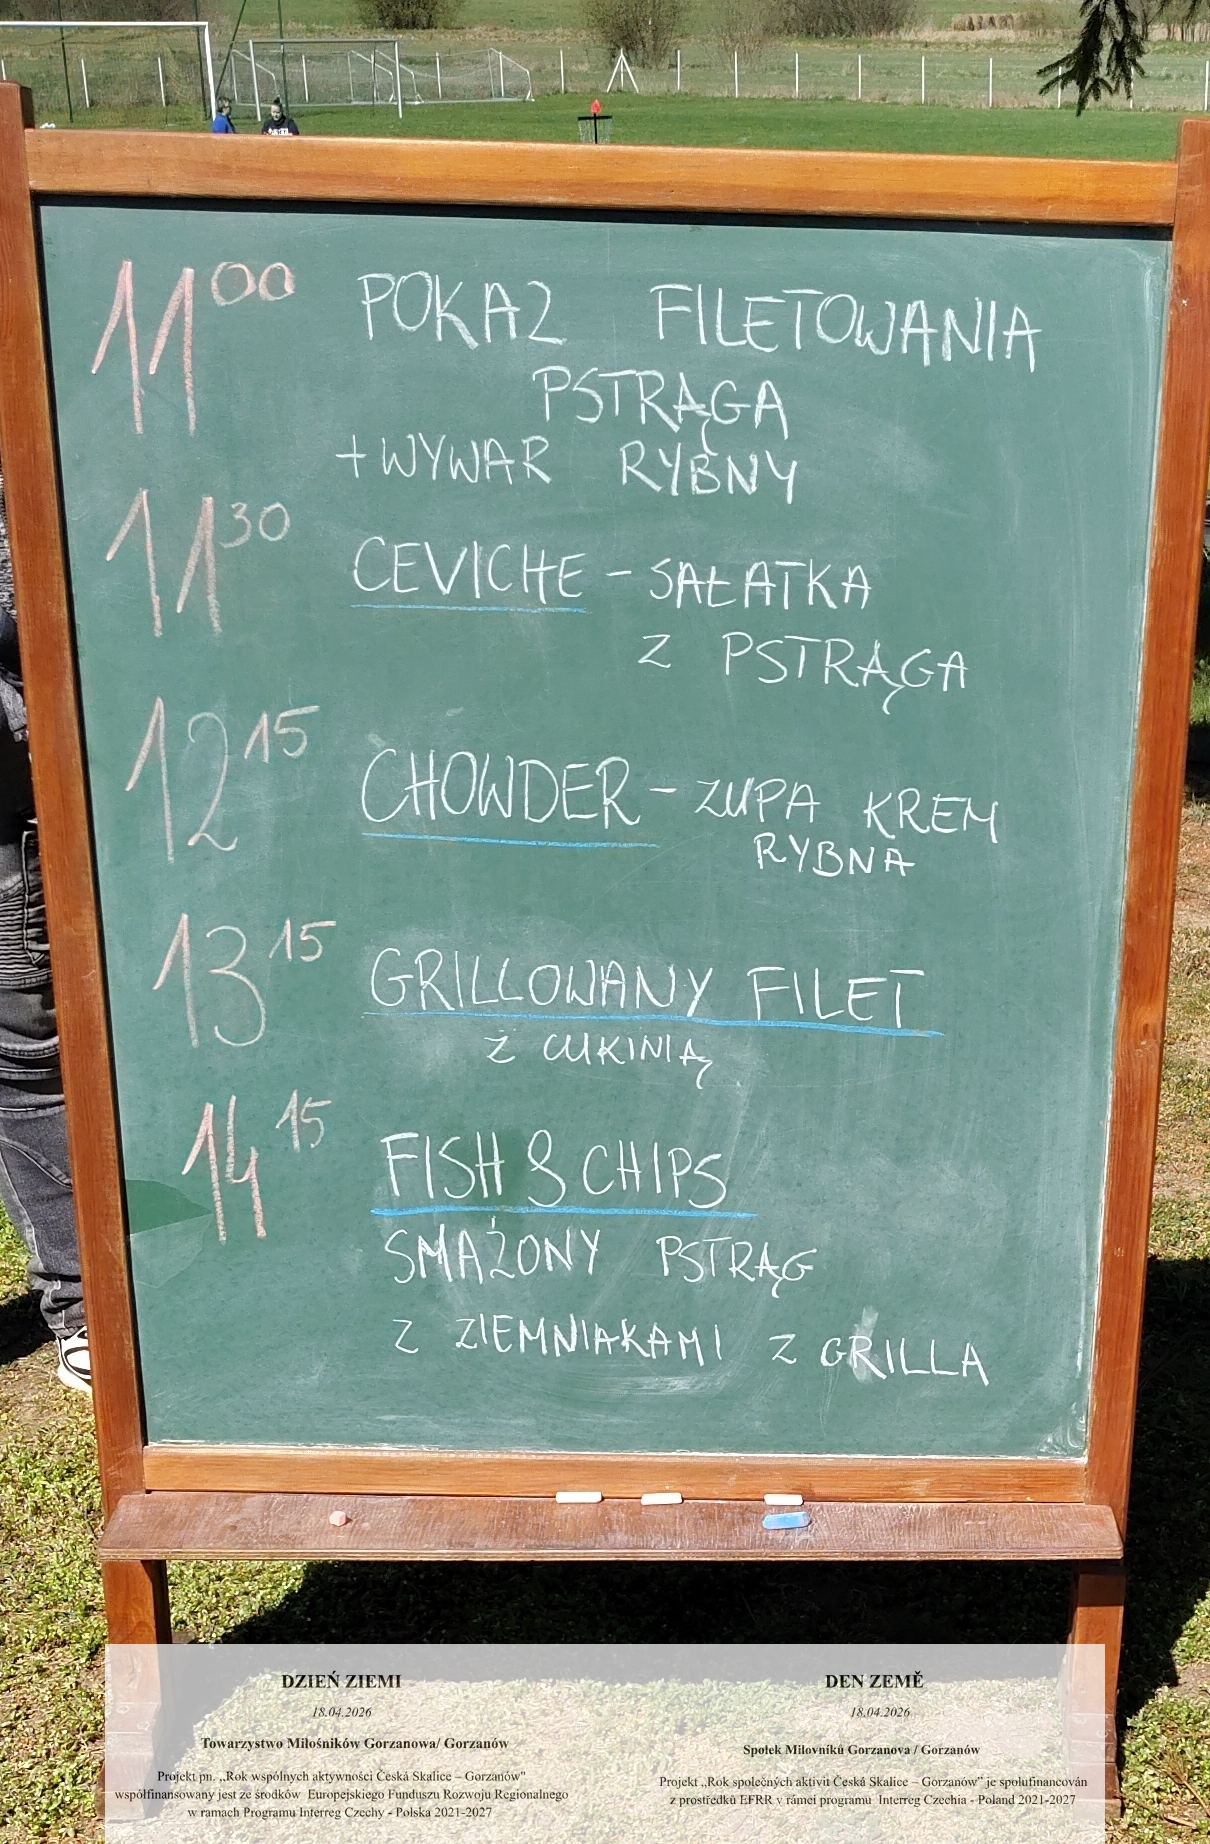 11 00 POKAZ FILETOWANIA
PSTRĄGA
+ WYWAR RYBNY
11 30 CEVICHE - SAŁATKA
Z PSTRĄGA
12 15 CHOWDER - ZUPA KREM
RYBNA
13 15 GRILLOWANY FILET
Z CUKINIĄ
14 15 FISH & CHIPS
SMAŻONY PSTRĄG
Z ZIEMNIAKAMI Z GRILLA
DZIEŃ ZIEMI
18.04.2026
Towarzystwo Miłośników Gorzanowa/ Gorzanów
Projekt pn. „Rok wspólnych aktywności Česká Skalice – Gorzanów"
współfinansowany jest ze środków Europejskiego Funduszu Rozwoju Regionalnego
w ramach Programu Interreg Czechy - Polska 2021-2027
DEN ZEMĚ
18.04.2026
Spolek Milovníků Gorzanova / Gorzanów
Projekt „Rok společných aktivit Česká Skalice – Gorzanów” je spolufinancován
z prostředků EFRR v rámci programu Interreg Czechia - Poland 2021-2027